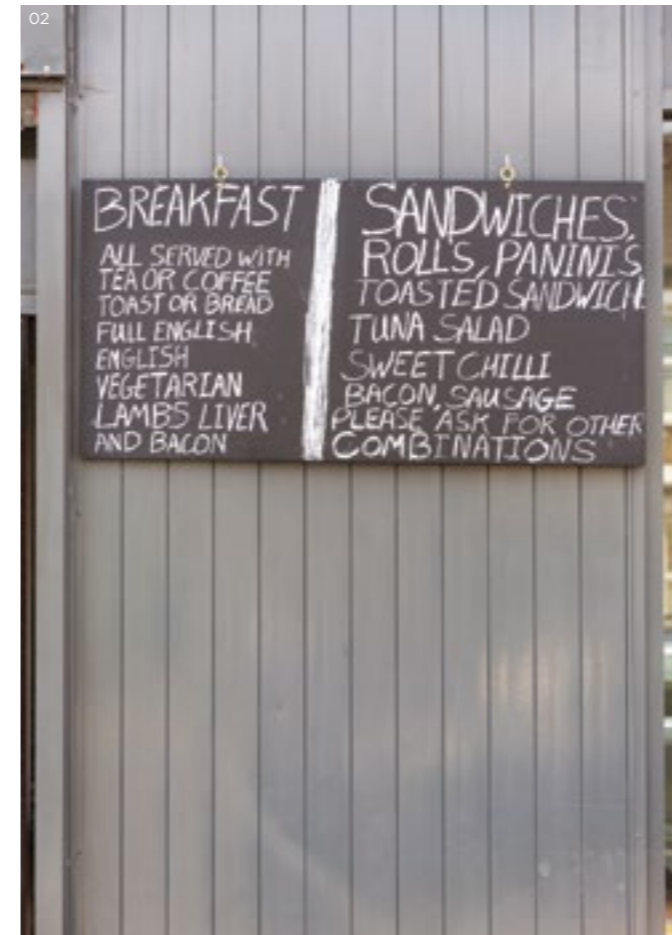 02
BREAKFAST
ALL SERVED WITH
TEA OR COFFEE
TOAST OR BREAD
FULL ENGLISH
ENGLISH
VEGETARIAN
LAMBS LIVER
AND BACON
SANDWICHES,
ROLLS, PANINI'S
TOASTED SANDWICH
TUNA SALAD
SWEET CHILLI
BACON, SAUSAGE
PLEASE ASK FOR OTHER
COMBINATIONS